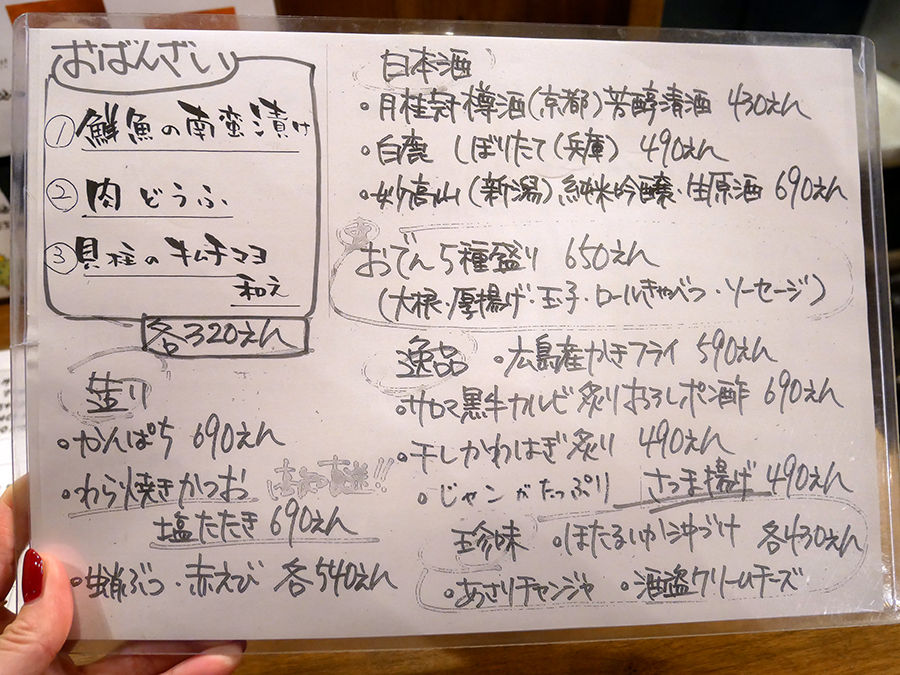 おばんざい
① 鮮魚の南蛮漬け
② 肉どうふ
③ 貝柱のキムチマヨ
和え
各320えん
造り
・かんぱち 690えん
・わら焼きかつお
塩たたき 690えん
・蛸ぶつ・赤えび 各540えん
日本酒
・月桂冠 樽酒(京都)芳醇清酒 430えん
・白鹿 しぼりたて(兵庫) 490えん
・妙高山(新潟)純米吟醸・生原酒 690えん
おでん5種盛り 650えん
(大根・厚揚げ・玉子・ロールきゃべつ・ソーセージ)
逸品 ・広島産かきフライ 590えん
・サロマ黒牛カルビ炙りおろしポン酢 690えん
・干しかわはぎ炙り 490えん
・じゃンがたっぷり さつま揚げ 490えん
珍味 ・ほたるいか沖づけ 各430えん
・あさりチャンジャ ・酒盗クリームチーズ